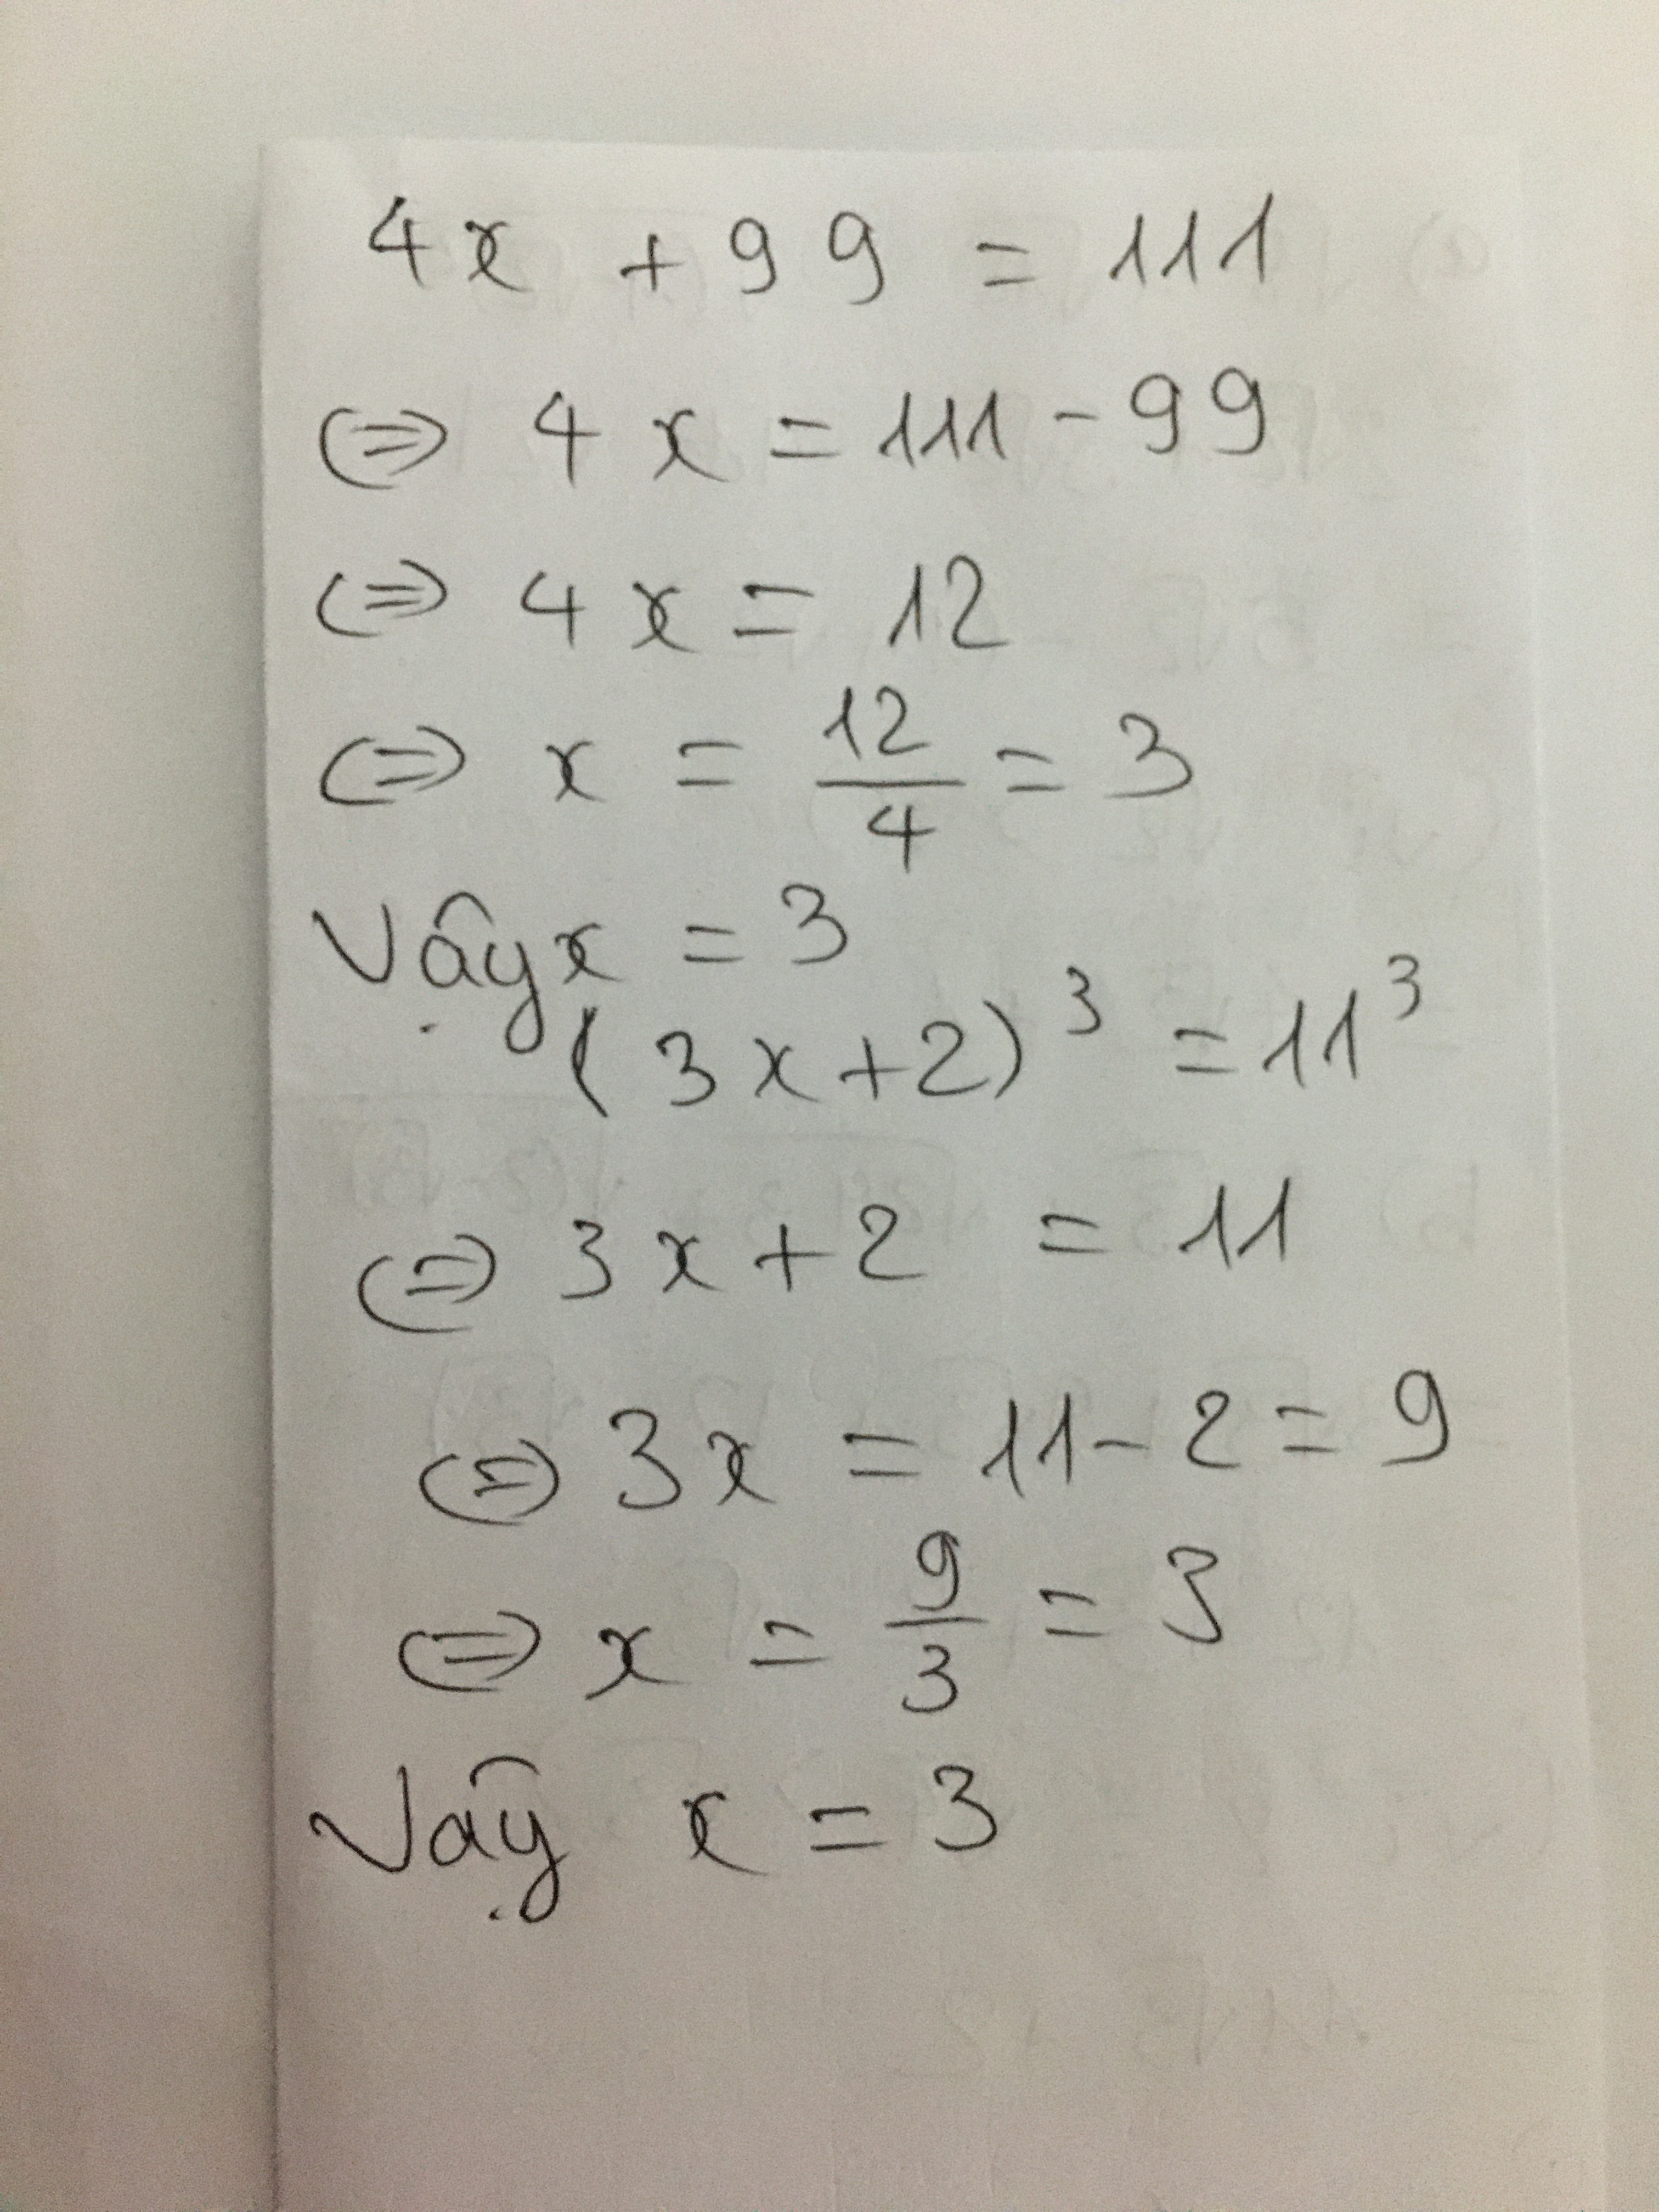 4x + 99 = 111
⇔ 4x = 111 - 99
⇔ 4x = 12
⇔ x = 12/4 = 3
Vậy x = 3
(3x+2)³ = 11³
⇔ 3x + 2 = 11
⇔ 3x = 11 - 2 = 9
⇔ x = 9/3 = 3
Vậy x = 3